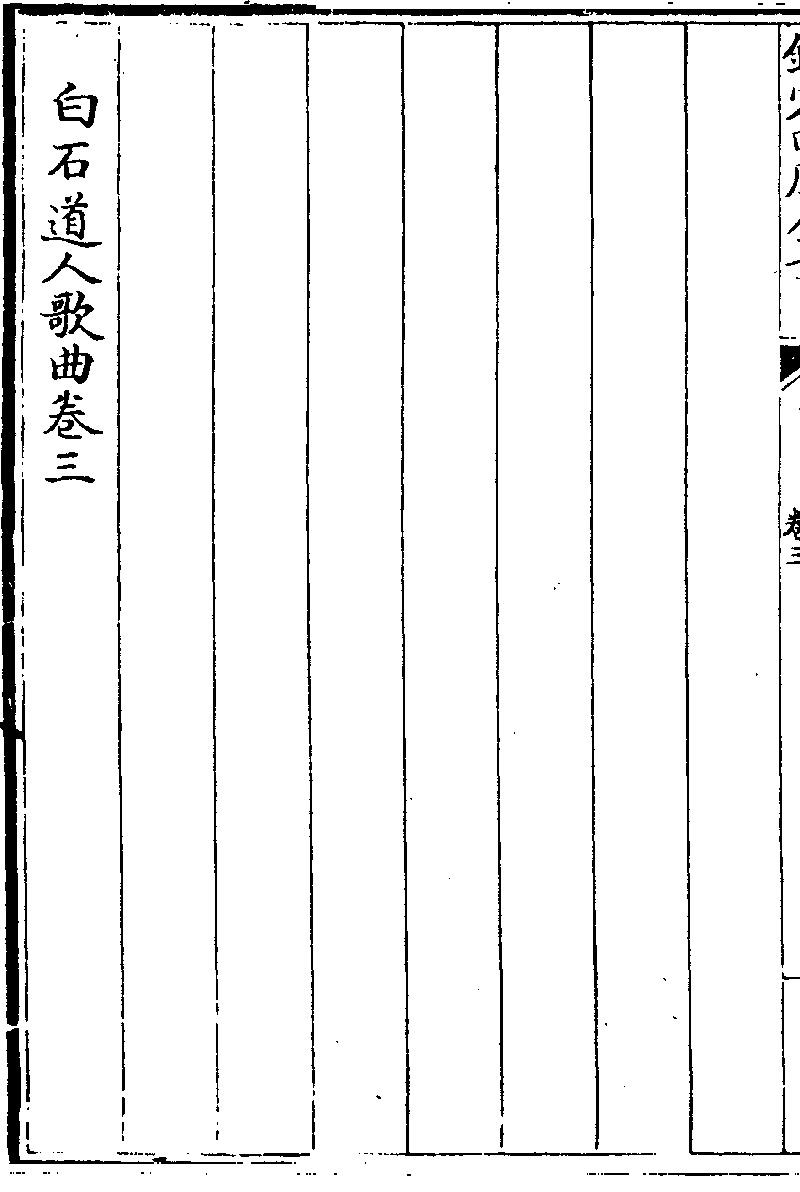 卷三
白石道人歌曲卷三